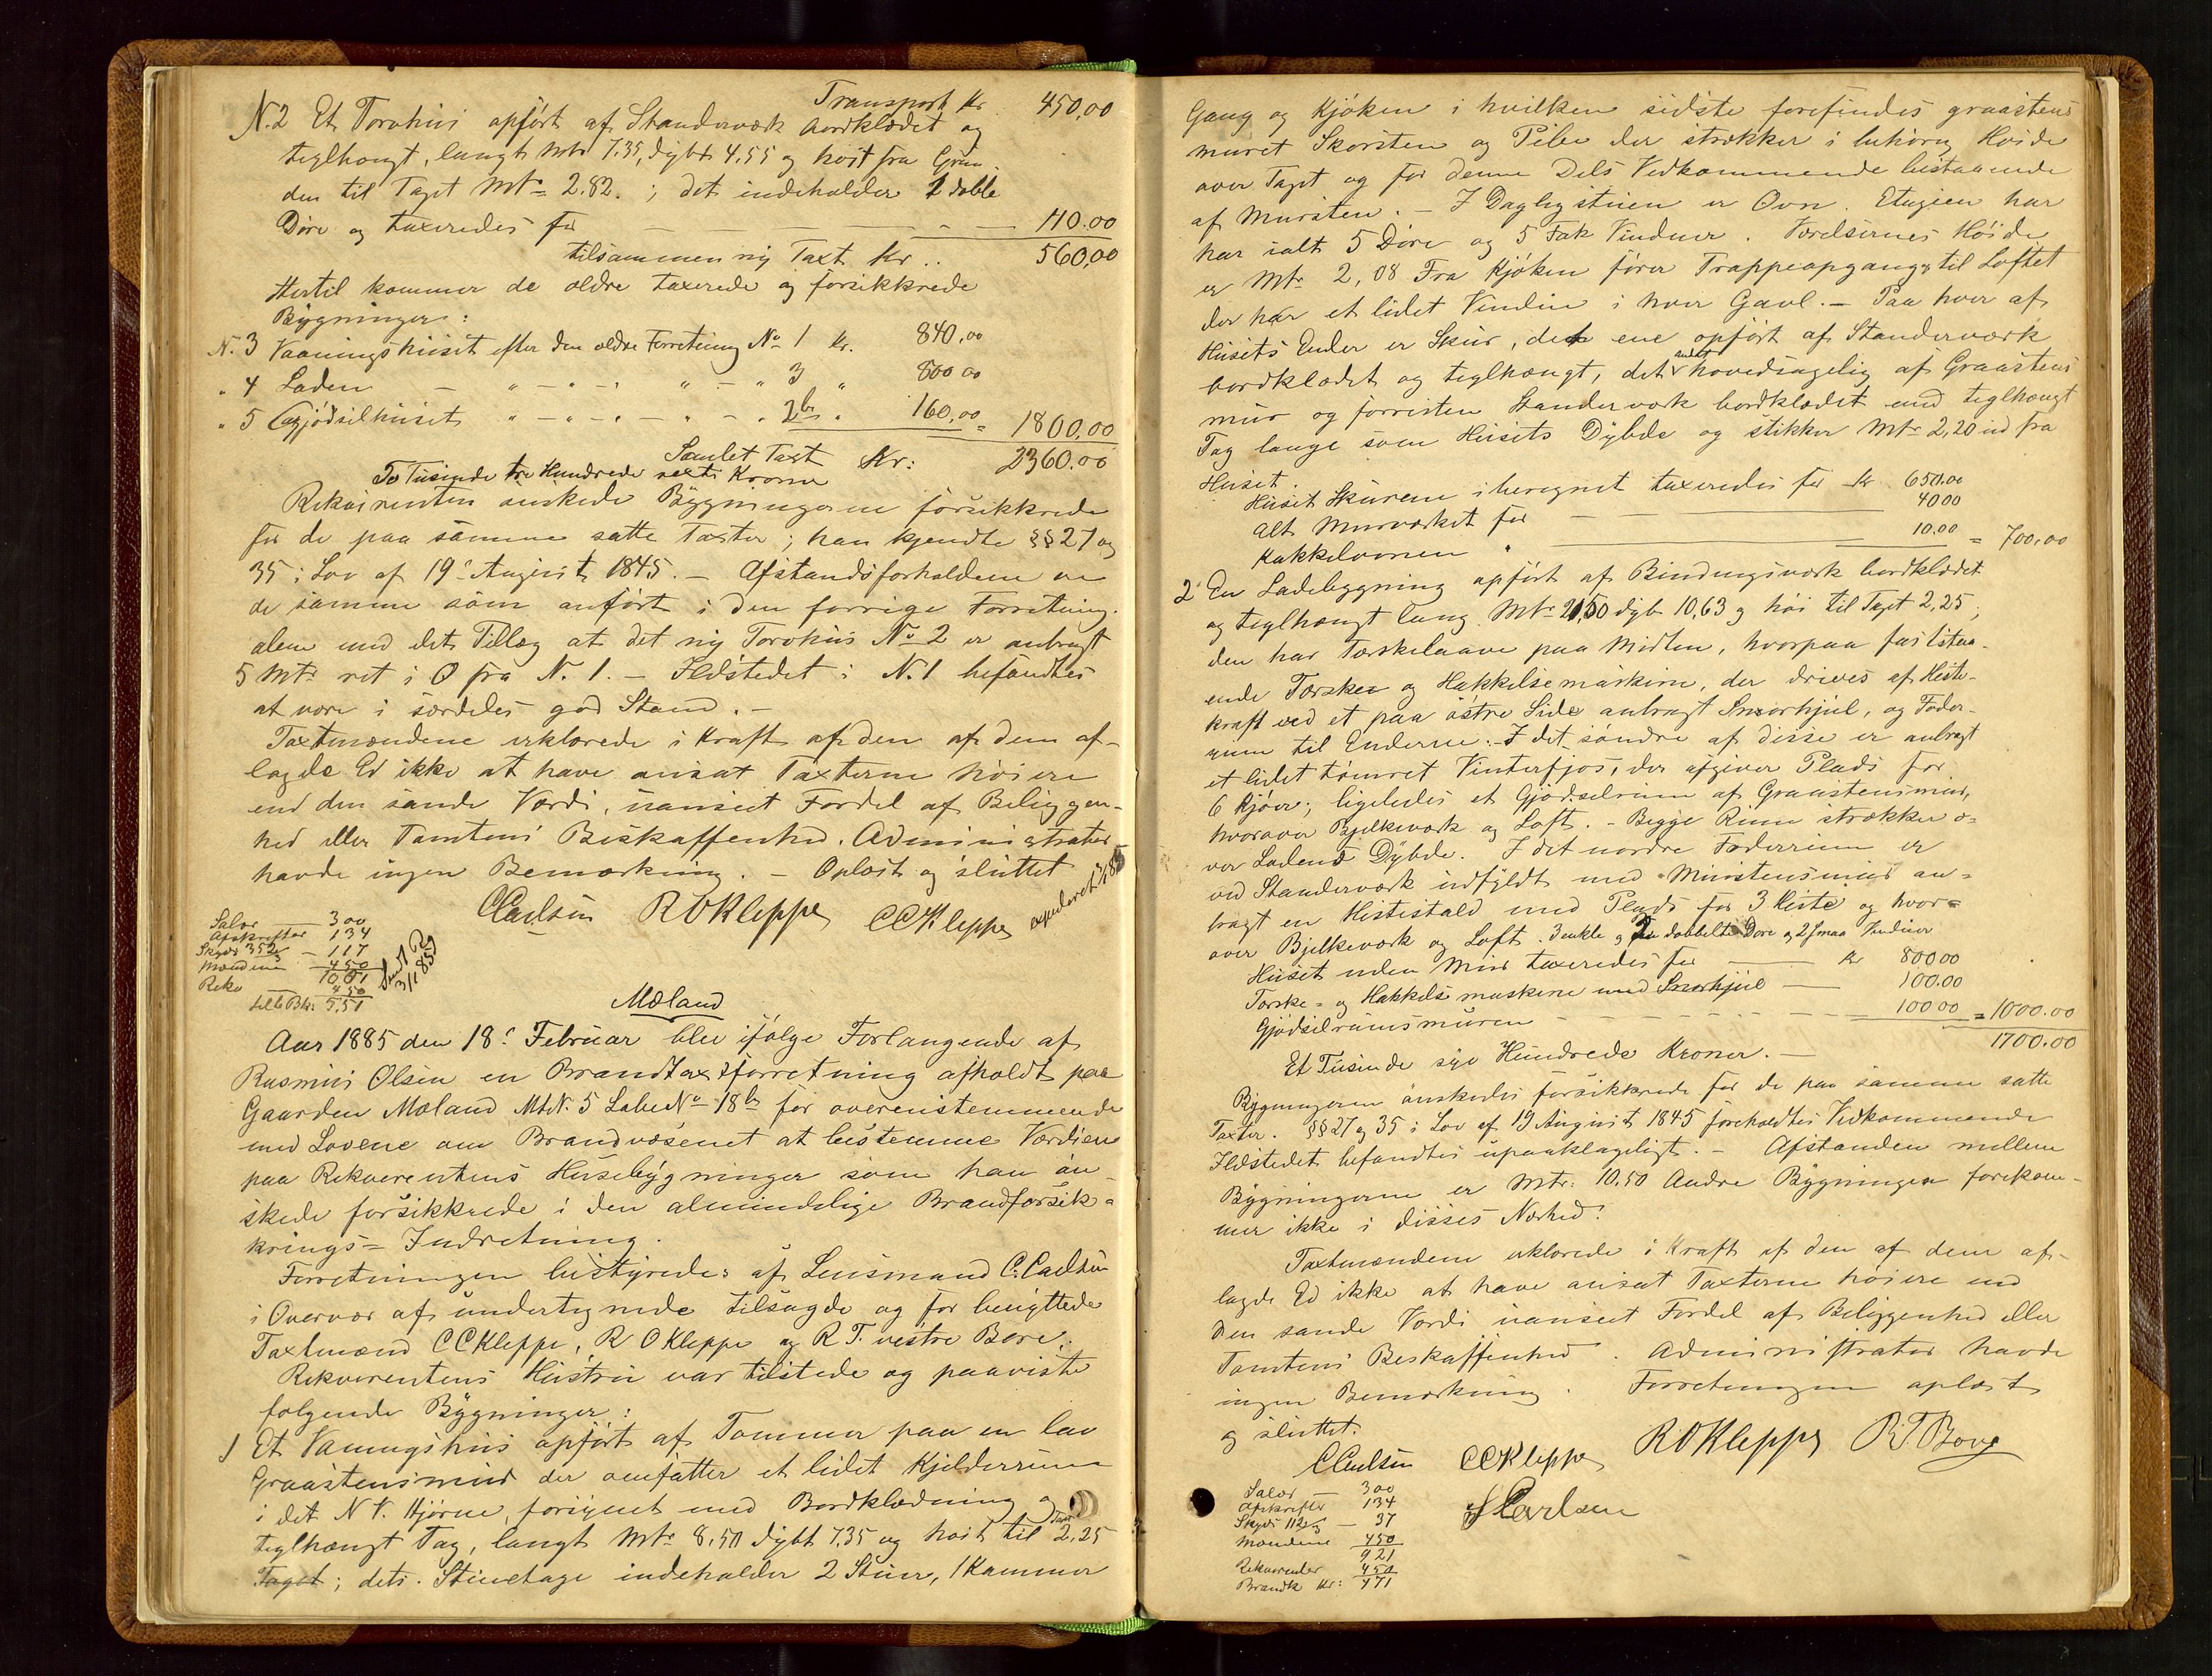 Transport Kr. 450,00
N.2 Et Torvhus opført af Standerværk bordklædet og
teglhængt, langt Mtr 7.35, dybt 4,55 og høit fra Grun-
den til Taget Mtr 2.82.; det indeholder 1 doble
Døre og taxeredes for — — — — 110.00
tilsammen ny Taxt Kr.. 560,00
Hertil kommer de ældre taxerede og forsikkrede
Bygninger:
N. 3 Vaaningshuset efter den ældre Forretning No 1 Kr. 840,00
" 4 Laden — " — " — " — " 3 " 800 00
" 5 Gjødselhuset " — " — " — " — " 2b " 160,00 = 1800,00
Samlet Taxt Kr: 2360.00
To Tusinde tre Hundrede sexti Kroner
Rekvirenten ønskede Bygningerne forsikkrede
for de paa samme satte Taxter; han kjendte §§ 27 og
35 i Lov af 19. August 1845. — Afstandsforholdene er
de samme som anført i den forrige Forretning.
alene med det Tillæg at det ny Torvhus No 2 er anbragt
5 Mtr ret i O fra N. 1. — Ildstedet i N.1 befandtes
at være i særdeles god Stand. —
Taxtmændene erklærede i Kraft af den af dem af-
lagde Ed ikke at have ansat Taxterne høiere
end den sande Værdi, uanseet Fordel af Beliggen-
hed eller Tomtens Beskaffenhed. Administrator
havde ingen Bemærkning. — Oplæst og sluttet
CCarlsen ROKleppe CCKleppe
Salær — 300
Afskrifter — 134
Skyds — 117
Mændene 450
10,01
Rekv 450
5,51
Mæland
Aar 1885 den 18. Februar blev ifølge Forlangende af
Rasmus Olsen en Brandtaxtforretning afholdt paa
Gaarden Mæland MtN. 5 LøbeNo 18b for overenstemmende
med Lovene om Brandvæsenet at bestemme Værdien
paa Rekverentens Husebygninger som han øn-
skede forsikkrede i den almindelige Brandforsik-
krings-Indretning.
Forretningen bestyredes af Lensmand C. Carlsen
i Overvær af undertegnede tilsagde og for benyttede
Taxtmænd CCKleppe, R O Kleppe og R T. vestre Bore.
Rekverentens Hustru var tilstede og paaviste
følgende Bygninger:
1 Et Vaaningshus opført af Tømmer paa en lav
Graastensmur der omfatter et lidet Kjelderrum
i det N V. Hjørne, forsynet med Bordklædning og
teglhængt Tag, langt Mtr 8,50 dybt 7,35 og høit til Taget 2,25
Taget; dets Stueetage indeholder 2 Stuer, 1 Kammer
Gang og Kjøken i hvilken sidste forefindes graastens
muret Skorsten og Pibe der strækker i behørig Høide
over Taget og for denne Dels Vedkommende bestaaende
af Mursten. — I Dagligstuen er Ovn. Etagien har
har ialt 5 Døre og 5 Fak Vinduer. Værelsernes Høide
er Mtr 2,08 Fra Kjøken fører Trappeopgang til Loftet
der har et lidet Vindue i hver Gavl. — Paa hver af
Husets Ender er Skur, det ene opført af Standerværk
bordklædet og teglhængt, det andet hovedsagelig af Graastens
mur og forresten Standerværk bordklædet med teglhængt
Tag lange som Husets Dybde og stikker Mtr 2,20 ud fra
Huset.
Huset Skurene iberegnet taxeredes for Kr 650.00
alt Murværket for — 40 00
Kakkelovnen " — 10.00 = 700,00
2 En Ladebygning opført af Bindingsværk bordklædet
og teglhængt lang Mtr 21,50 dyb 10,63 og høi til Taget 2,25;
den har Tærskelaave paa Midten, hvorpaa faststaa-
ende Tærske og Hakkelsemaskine, der drives af Heste-
kraft ved et paa østre Side anbragt Snorhjul, og Foder-
rum til Enderne. — I det søndre af disse er anbragt
et lidet tømret Vinterfjøs, der afgiver Plads for
6 Kjøer; ligeledes et Gjødselrum af Graastensmur,
hvorover Bjelkeværk og Loft. — Begge Rum strækker o-
ver Ladens Dybde. I det nordre Foderrum er
ved Standerværk udfyldt med Murstensmur an-
bragt en Hestestald med Plads for 3 Heste og hvor-
over Bjelkeværk og Loft. 3 enkle og 2 dobbelte Døre og 2 smaa Vinduer
Huset uden Mur taxeredes for — Kr 800 00
Tærske- og Hakkelsmaskine med Snorhjul — 100.00
Gjødselrumsmuren — 100 00 = 1000.00
1700.00
Et Tusinde syv Hundrede Kroner. —
Bygningerne ønskedes forsikkrede for de paa samme satte
Taxter. §§ 27 og 35 i Lov af 19 August 1845 foreholdtes Vedkommende
Ildstedet befandtes upaaklageligt. — Afstanden mellem
Bygningerne er Mtr. 10.50 Andre Bygninger forekom-
mer ikke i disses Nærhed.
Taxtmændene erklærede i Kraft af den af dem af-
lagde Ed ikke at have ansat Taxterne høiere end
den sande Værdi uanseet Fordel af Beliggenhed eller
Tomtens Beskaffenhed. Administrator havde
ingen Bemærkning. Forretningen oplæst
og sluttet.
CCarlsen CCKleppe ROKleppe RTBore
Carlsen
Salær — 300
Afskrifter 134
Skyds — 37
Mændene 450
921
Rekverenter 450
Brandk Kr: 471